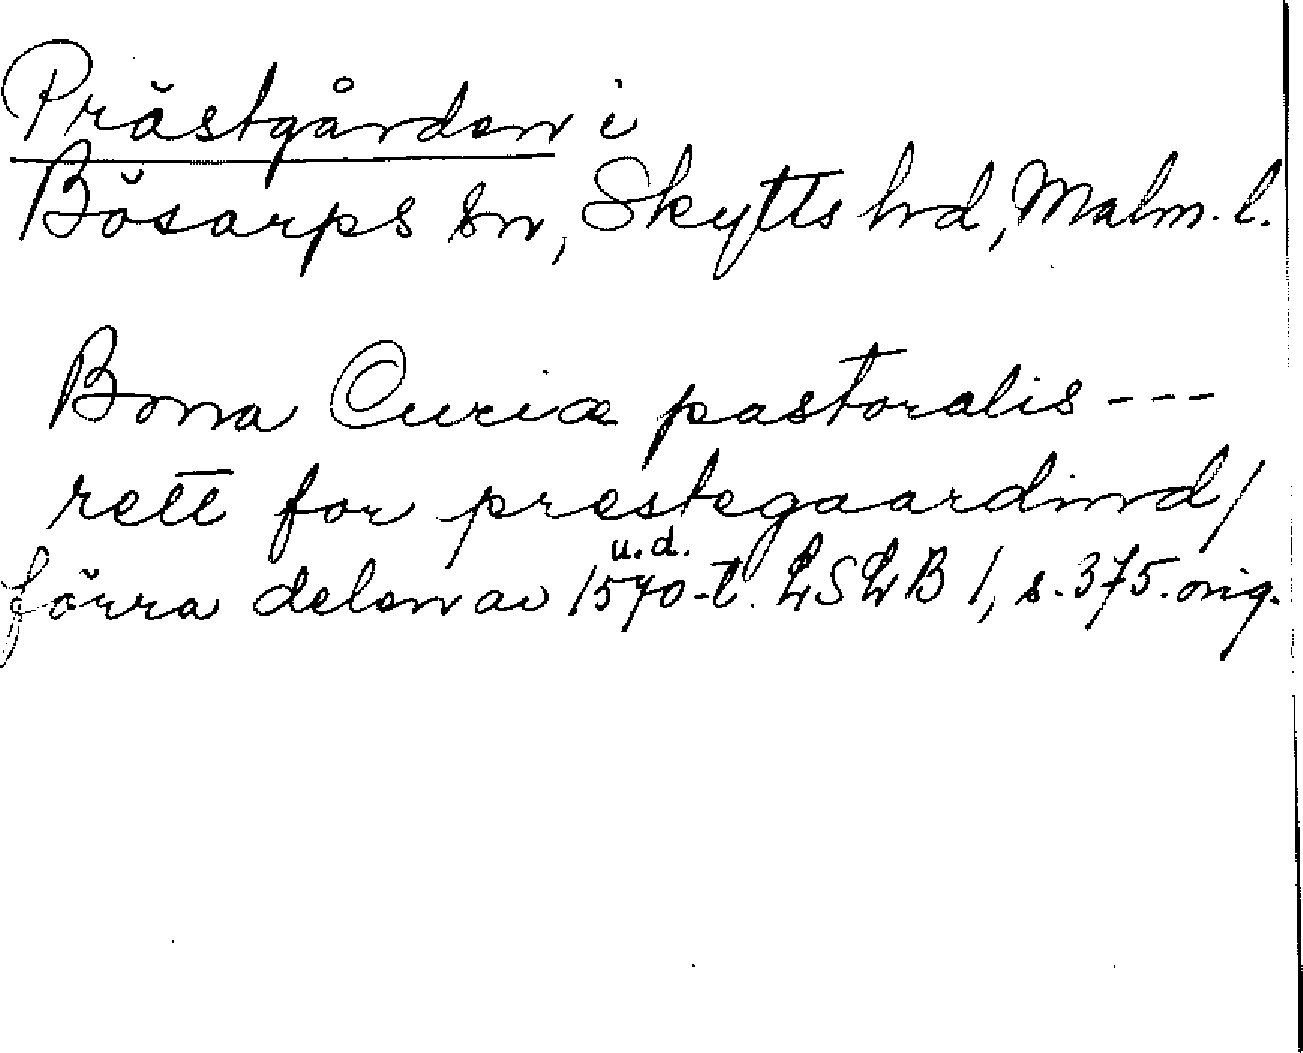 Prästgården i
Bösarps sn, Skytts hrd, Malm. l.
Bona Curiæ pastoralis ---
rett for prestegaardind/
u.d.
förra delen av 1570-t. LSLB 1, s. 375. orig.